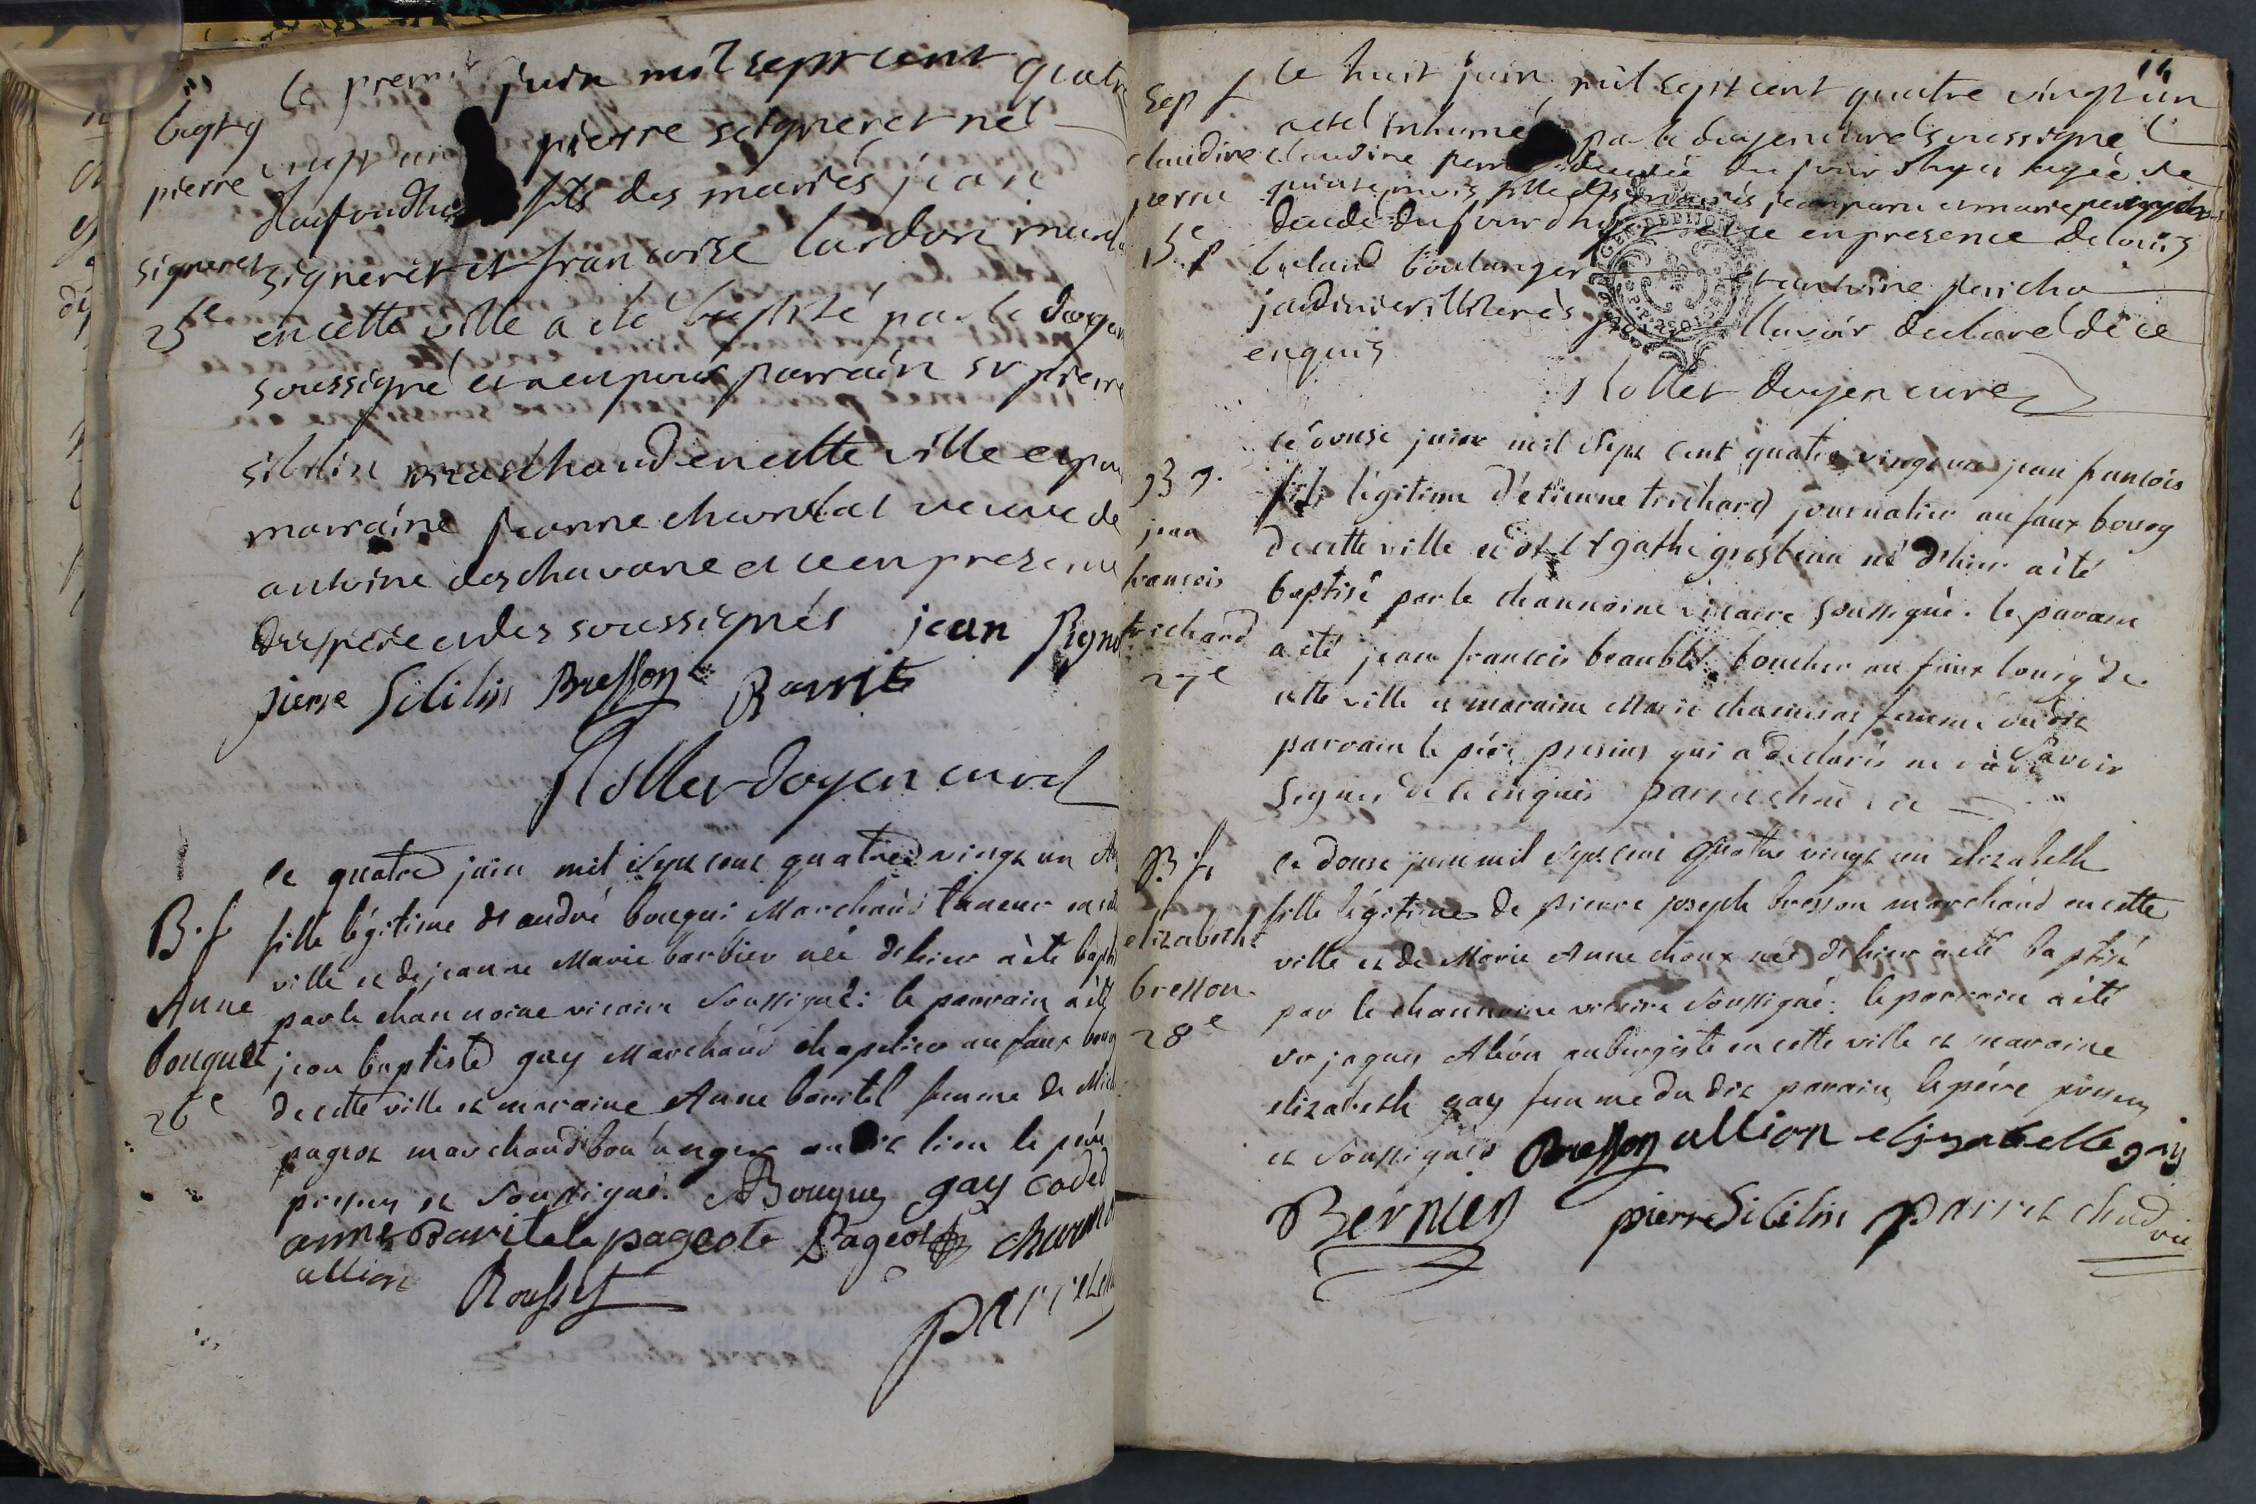 le premier juin mil sept cent quatre
bapt g
pierre
signeret
25e
vingt un pierre seigneret né
d'aujourd'hui fils des mariés jean
signeret et francoise lardon marchand
en cette ville a été baptisé par le doyen
soussigné et a eu pour parrain sr pierre
sibilin marchand en cette ville et pour
marraine jeanne chandal veuve de
antoine deschavane et ce en presence
du pere et des soussignés jean signe
pierre Sibilin Bresson Ravit
Rollet doyen curé
le quatre juin mil sept cent quatre vingt un
B. f
Anne
bouquet
26e
fille légitime de andré bouqui Marchand taneur en cette
ville et de jeanne Marie barbier née d'hier a été bapt
par le channoine vicaire soussigné: le parrain a été
jean baptiste gay Marchand chapelier au faux bourg
de cette ville et maraine Anne baritel femme de
pageot marchand boulanger au dit lieu le père
present et soussigné. ABouquet gay cadet
anne Baritele pageote Pageot
allion Rousset
parret
11
Sep f
claudine
perru
15e f
le huit juin mil sept cent quatre vingt un
a eté inhumée par le doyen curé soussigné
claudine decedée du jour d'hyer agée de
quinse mois fille des mariés jean perru et marie
decedé du jour d'hyer et ce en presence de louis
boulanger et antoine
jardinier illiterés pour l'avoir declaré de ce
enquis
Rollet doyen curé
B g.
jean
francois
trichard
27e
le onse juin mil sept cent quatre vingt un jean francois
fils légitime d'etienne trichard journalier au faux bourg
de cette ville et d'Agathe grosbeau né d'hier a été
baptisé par le channoine vicaire soussigné. le parain
a été jean francois boucher au faux bourg de
cette ville et maraine Marie femme du dit
parrain le père present qui a declaré ne savoir
signer de ce enquis parret
B f.
elizabeth
bresson
28e
le douse juin mil sept cent quatre vingt un elizabeth
fille légitime de pierre joseph bresson marchand en cette
ville et de Marie Anne choux née d'hier a été baptisé
par le channoine vicaire soussigné. le parrain a été
sr jaques Alion aubergiste en cette ville et maraine
elizabeth gay femme du dit parain le père present
et soussignés Bresson allion elizabelle gay
Bernier pierre Sibilin parret